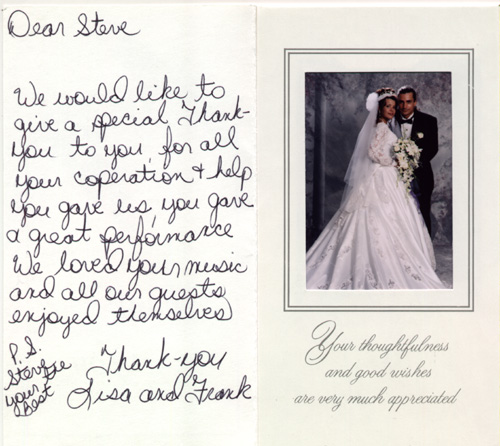 Dear Steve
We would like to
give a special Thank-
you to you, for all
your coperation & help
you gave us, you gave
a great performance
We loved your music
and all our guests
enjoyed themselves
Thank-you
Lisa and Frank
P.S.
Steve
your
Best
Your thoughtfulness
and good wishes
are very much appreciated